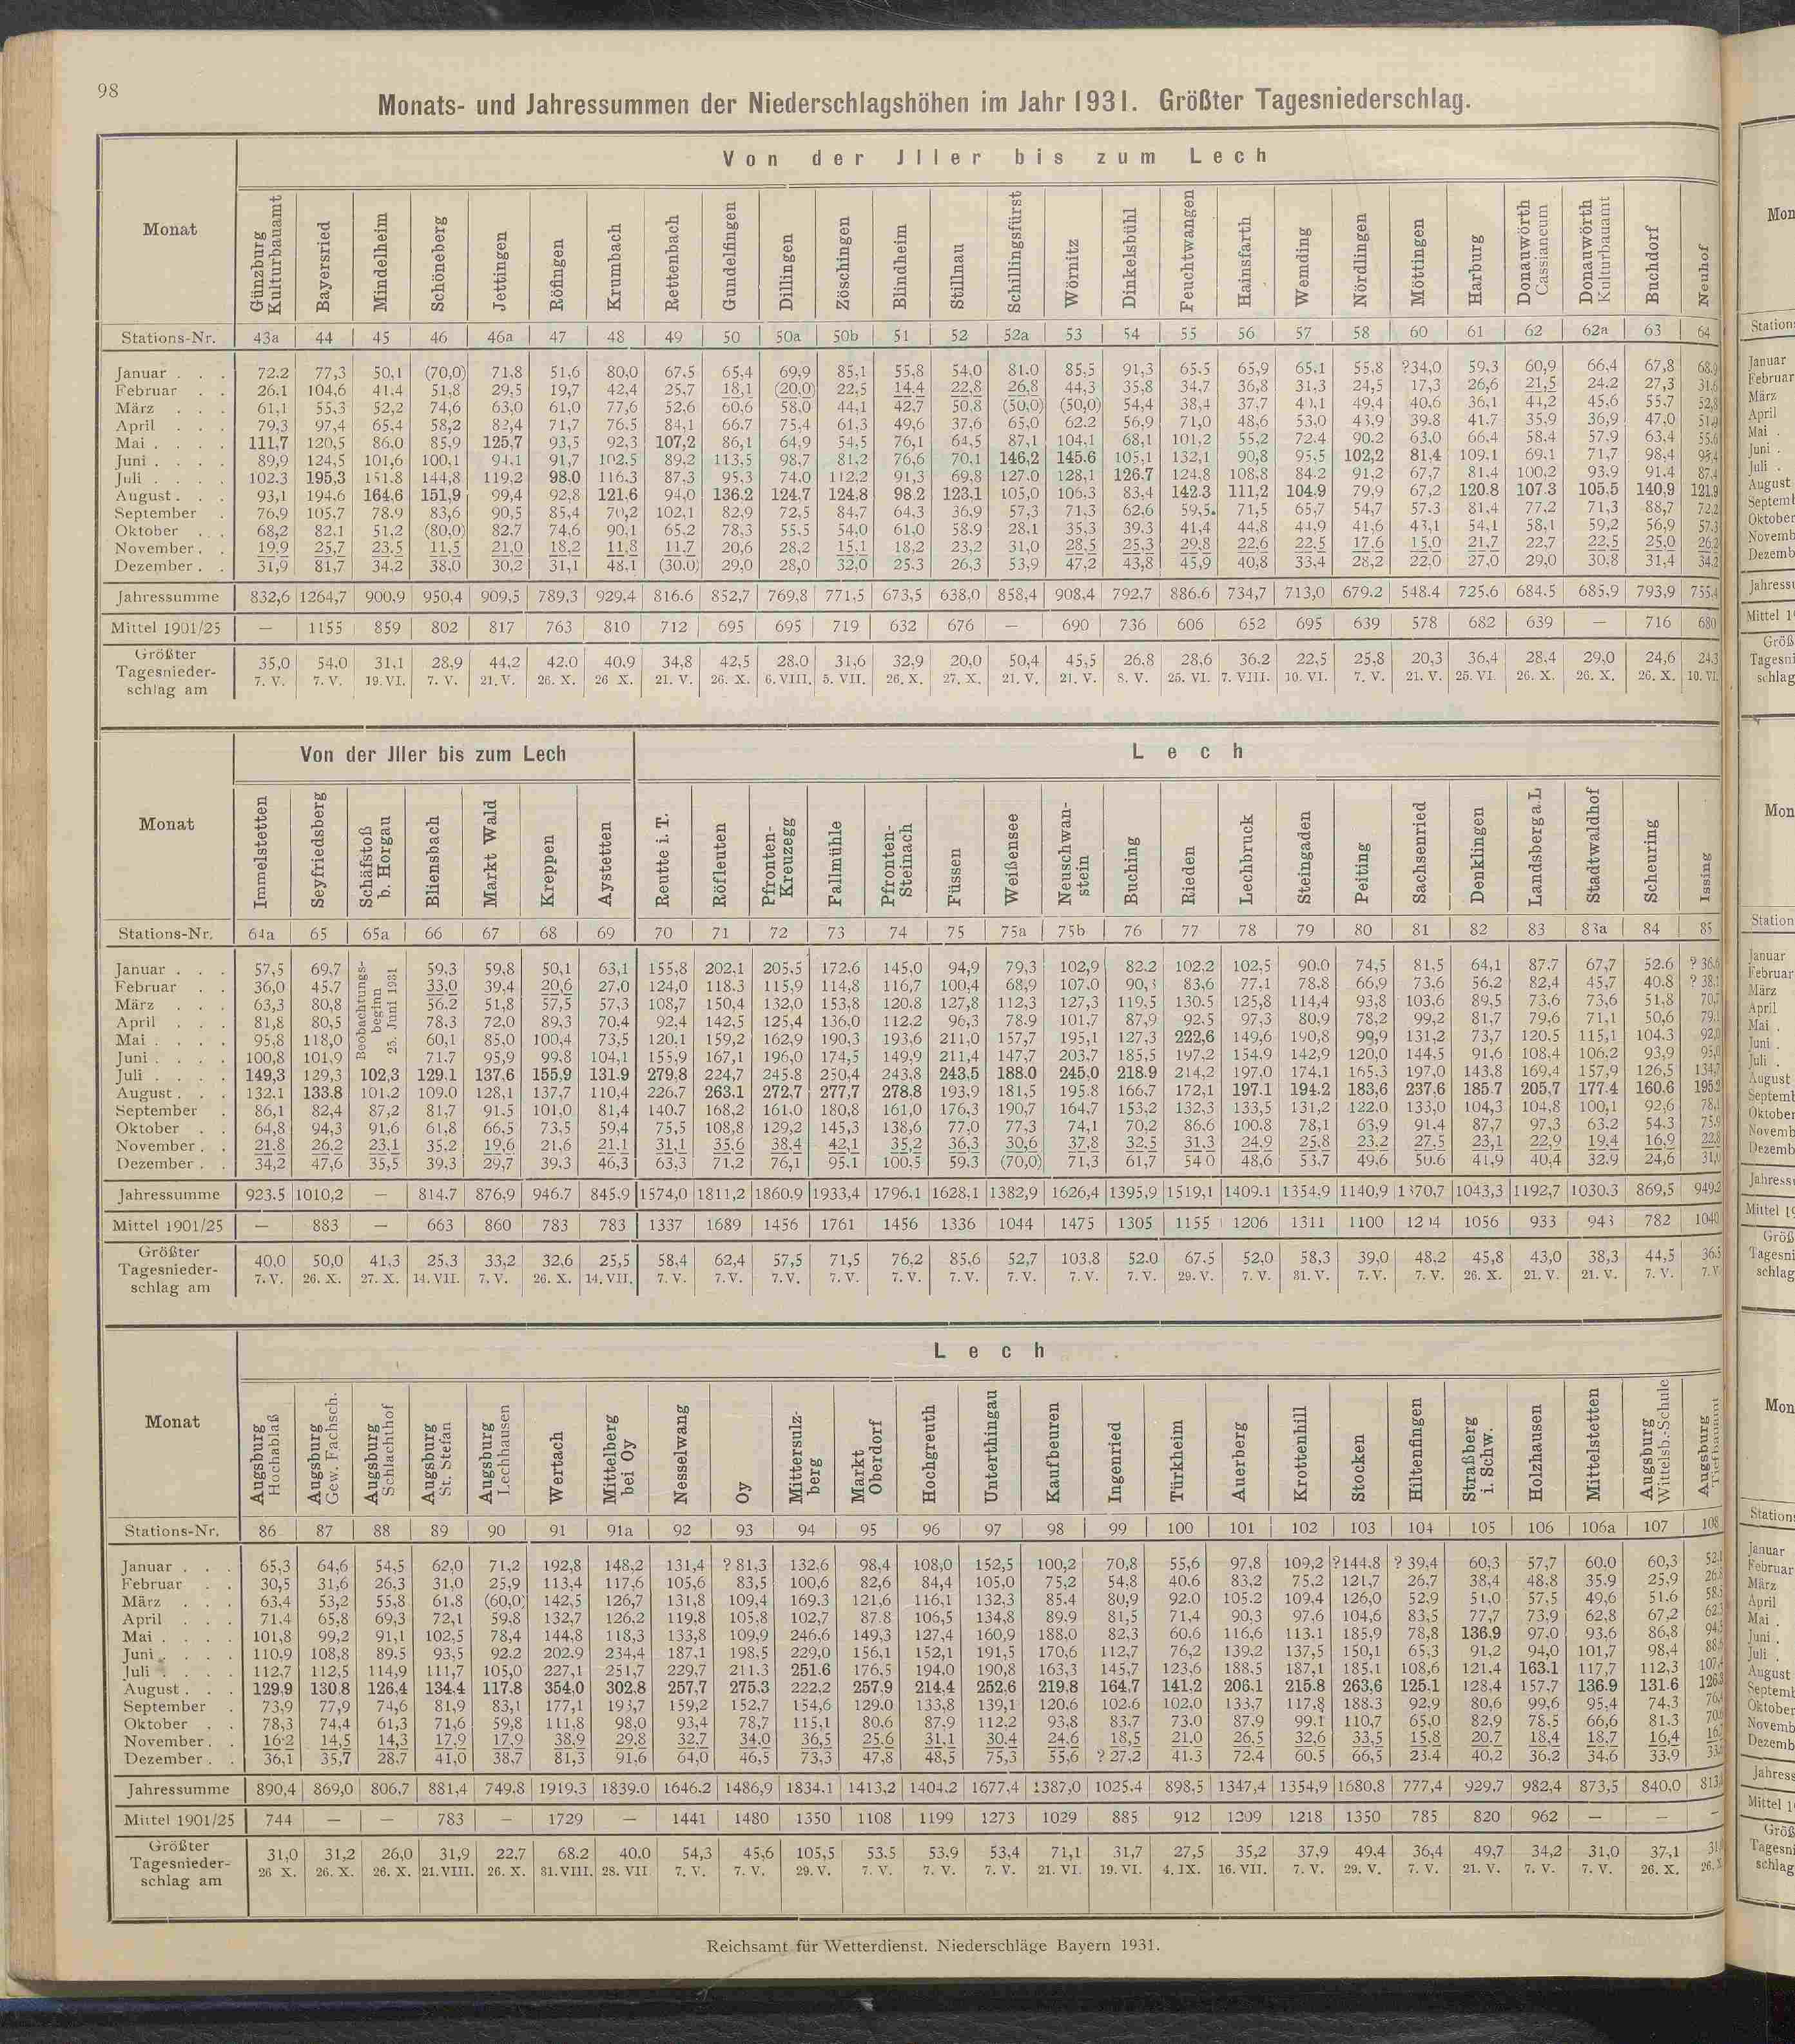 98
Monats- und Jahressummen der Niederschlagshöhen im Jahr 1931. Größter Tagesniederschlag.
Von der Jller bis zum Lech
Monat Günzburg Kulturbauamt Bayersried Mindelheim Schöneberg Jettingen Röfingen Krumbach Rettenbach Gundelfingen Dillingen Zöschingen Blindheim Stillnau Schillingsfürst Wörnitz Dinkelsbühl Feuchtwangen Hainsfarth Wemding Nördlingen Möttingen Harburg Donauwörth Cassianeum Donauwörth Kulturbauamt Buchdorf Neuhof
Stations-Nr. 43a 44 45 46 46a 47 48 49 50 50a 50b 51 52 52a 53 54 55 56 57 58 60 61 62 62a 63 64
Januar . . . 72.2 77,3 50,1 (70,0) 71,8 51,6 80,0 67,5 65,4 69,9 85,1 55,8 54,0 81.0 85,5 91,3 65.5 65,9 65.1 55,8 ?34,0 59,3 60,9 66,4 67,8 68,9
Februar . . 26,1 104,6 41.4 51,8 29,5 19,7 42,4 25,7 18,1 (20,0) 22,5 14.4 22,8 26,8 44,3 35,8 34,7 36,8 31,3 24,5 17,3 26,6 21,5 24.2 27,3 31,6
März . . . 61,1 55,3 52,2 74,6 63,0 61,0 77,6 52,6 60,6 58,0 44,1 42,7 50,8 (50,0) (50,0) 54,4 38,4 37,7 40,1 49,4 40,6 36,1 44,2 45,6 55,7 52,8
April . . . 79,3 97,4 65,4 58,2 82,4 71,7 76,5 84,1 66.7 75,4 61,3 49,6 37,6 65,0 62.2 56,9 71,0 48,6 53,0 43,9 39.8 41.7 35,9 36,9 47,0 51,9
Mai . . . . 111,7 120,5 86,0 85,9 125,7 93,5 92,3 107,2 86,1 64,9 54,5 76,1 64,5 87,1 104,1 68,1 101,2 55,2 72.4 90.2 63.0 66,4 58.4 57.9 63,4 55,6
Juni . . . . 89,9 124,5 101,6 100,1 94,1 91,7 102,5 89,2 113,5 98,7 81,2 76,6 70,1 146,2 145.6 105,1 132,1 90,8 95,5 102,2 81,4 109,1 69.1 71,7 98,4 95,4
Juli . . . . 102.3 195,3 151.8 144,8 119,2 98.0 116,3 87,3 95,3 74.0 112,2 91,3 69,8 127.0 128,1 126.7 124,8 108,8 84.2 91,2 67,7 81.4 100,2 93.9 91,4 87,4
August . . . 93,1 194,6 164,6 151,9 99,4 92,8 121,6 94,0 136,2 124.7 124,8 98.2 123.1 105,0 106,3 83,4 142.3 111,2 104.9 79,9 67,2 120.8 107.3 105,5 140,9 121,9
September . 76,9 105,7 78,9 83,6 90,5 85,4 70,2 102,1 82,9 72,5 84,7 64,3 36,9 57,3 71,3 62,6 59,5 71,5 65,7 54,7 57.3 81,4 77.2 71,3 88,7 72,2
Oktober . . 68,2 82,1 51,2 (80,0) 82.7 74,6 90,1 65,2 78,3 55,5 54,0 61,0 58.9 28,1 35,3 39.3 41,4 44,8 44,9 41,6 43,1 54,1 58,1 59,2 56,9 57,3
November . . 19,9 25,7 23,5 11,5 21,0 18,2 11,8 11,7 20,6 28,2 15,1 18,2 23,2 31,0 28,5 25,3 29,8 22,6 22.5 17,6 15,0 21,7 22,7 22,5 25,0 26,2
Dezember . . 31,9 81,7 34,2 38,0 30,2 31,1 48,1 (30.0) 29,0 28,0 32,0 25.3 26,3 53,9 47,2 43,8 45,9 40,8 33.4 28,2 22,0 27,0 29,0 30,8 31,4 34,2
Jahressumme 832,6 1264,7 900,9 950,4 909,5 789,3 929,4 816.6 852,7 769,8 771,5 673,5 638,0 858,4 908,4 792,7 886.6 734,7 713,0 679.2 548.4 725.6 684.5 685,9 793,9 755,4
Mittel 1901/25 — 1155 859 802 817 763 810 712 695 695 719 632 676 — 690 736 606 652 695 639 578 682 639 — 716 680
Größter Tagesniederschlag am 35,0 54,0 31,1 28,9 44,2 42.0 40,9 34,8 42,5 28.0 31,6 32,9 20,0 50,4 45,5 26,8 28,6 36.2 22,5 25,8 20,3 36,4 28,4 29,0 24,6 24,3
7. V. 7. V. 19. VI. 7. V. 21. V. 26. X. 26 X. 21. V. 26. X. 6. VIII. 5. VII. 26. X. 27. X. 21. V. 21. V. 8. V. 25. VI. 7. VIII. 10. VI. 7. V. 21. V. 25. VI. 26. X. 26. X. 26. X. 10. VI.
Von der Jller bis zum Lech Lech
Monat Immelstetten Seyfriedsberg Schäfstoß b. Horgau Bliensbach Markt Wald Kreppen Aystetten Reutte i. T. Röfleuten Pfronten-Kreuzegg Fallmühle Pfronten-Steinach Füssen Weißensee Neuschwanstein Buching Rieden Lechbruck Steingaden Peiting Sachsenried Denklingen Landsberg a. L Stadtwaldhof Scheuring Issing
Stations-Nr. 64a 65 65a 66 67 68 69 70 71 72 73 74 75 75a 75b 76 77 78 79 80 81 82 83 83a 84 85
Beobachtungsbeginn 25. Juni 1931
Januar . . . 57,5 69,7 59,3 59,8 50,1 63,1 155,8 202,1 205,5 172,6 145,0 94,9 79,3 102,9 82.2 102.2 102,5 90.0 74,5 81,5 64,1 87.7 67,7 52.6 ? 36,6
Februar . . 36,0 45,7 33,0 39,4 20,6 27,0 124,0 118.3 115,9 114,8 116,7 100,4 68,9 107.0 90,3 83,6 77,1 78.8 66,9 73.6 56.2 82,4 45,7 40.8 ? 38,1
März . . . 63,3 80,8 56.2 51,8 57,5 57,3 108,7 150,4 132,0 153,8 120.8 127,8 112,3 127,3 119,5 130.5 125,8 114,4 93,8 103,6 89.5 73,6 73,6 51,8 70,7
April . . . 81,8 80,5 78.3 72,0 89,3 70.4 92,4 142,5 125,4 136,0 112.2 96,3 78.9 101,7 87,9 92.5 97,3 80,9 78,2 99,2 81,7 79,6 71,1 50,6 79,1
Mai . . . . 95,8 118,0 60,1 85,0 100,4 73,5 120.1 159,2 162,9 190,3 193,6 211,0 157,7 195,1 127,3 222,6 149,6 190,8 99,9 131,2 73,7 120.5 115,1 104.3 92,0
Juni . . . . 100,8 101,9 71.7 95,9 99,8 104,1 155,9 167,1 196,0 174,5 149,9 211,4 147,7 203,7 185,5 197.2 154,9 142,9 120,0 144,5 91,6 108,4 106.2 93,9 95,0
Juli . . . . 149,3 129,3 102,3 129.1 137,6 155,9 131.9 279,8 224,7 245.8 250,4 243,8 243,5 188.0 245,0 218.9 214,2 197,0 174,1 165,3 197.0 143,8 169,4 157,9 126,5 134,7
August . . . 132.1 133,8 101.2 109,0 128,1 137,7 110,4 226,7 263.1 272,7 277,7 278,8 193,9 181,5 195.8 166,7 172,1 197.1 194.2 183,6 237,6 185.7 205,7 177.4 160.6 195,2
September . 86,1 82,4 87,2 81,7 91.5 101,0 81,4 140.7 168,2 161.0 180,8 161,0 176,3 190,7 164,7 153,2 132,3 133,5 131,2 122.0 133,0 104,3 104,8 100,1 92,6 78,1
Oktober . . 64,8 94,3 91,6 61,8 66.5 73,5 59,4 75,5 108,8 129,2 145,3 138,6 77,0 77,3 74,1 70,2 86.6 100.8 78,1 63,9 91.4 87,7 97,3 63.2 54.3 75,9
November . . 21.8 26.2 23.1 35,2 19,6 21,6 21.1 31,1 35,6 38,4 42,1 35,2 36,3 30,6 37,8 32,5 31.3 24,9 25,8 23.2 27,5 23,1 22,9 19,4 16,9 22,8
Dezember . . 34,2 47,6 35,5 39.3 29,7 39.3 46,3 63.3 71,2 76,1 95.1 100,5 59,3 (70,0) 71,3 61,7 54 0 48,6 53.7 49,6 50.6 41,9 40,4 32.9 24,6 31,0
Jahressumme 923.5 1010,2 — 814.7 876,9 946.7 845.9 1574,0 1811,2 1860.9 1933,4 1796,1 1628,1 1382,9 1626,4 1395,9 1519,1 1409.1 1354,9 1140,9 1370,7 1043,3 1192,7 1030,3 869,5 949,2
Mittel 1901/25 — 883 — 663 860 783 783 1337 1689 1456 1761 1456 1336 1044 1475 1305 1155 1206 1311 1100 1214 1056 933 943 782 1040
Größter Tagesniederschlag am 40,0 50,0 41,3 25,3 33,2 32,6 25,5 58,4 62,4 57,5 71,5 76,2 85,6 52,7 103,8 52.0 67,5 52,0 58,3 39,0 48,2 45,8 43,0 38,3 44,5 36,5
7. V. 26. X. 27. X. 14. VII. 7. V. 26. X. 14. VII. 7. V. 7. V. 7. V. 7. V. 7. V. 7. V. 7. V. 7. V. 7. V. 29. V. 7. V. 31. V. 7. V. 7. V. 26. X. 21. V. 21. V. 7. V. 7. V
Lech
Monat Augsburg Hochablaß Augsburg Gew. Fachsch. Augsburg Schlachthof Augsburg St. Stefan Augsburg Lechhausen Wertach Mittelberg bei Oy Nesselwang Oy Mittersulzberg Markt Oberdorf Hochgreuth Unterthingau Kaufbeuren Ingenried Türkheim Auerberg Krottenhill Stocken Hiltenfingen Straßberg i. Schw. Holzhausen Mittelstetten Augsburg Wittelsb.-Schule Augsburg Tiefbauamt
Stations-Nr. 86 87 88 89 90 91 91a 92 93 94 95 96 97 98 99 100 101 102 103 104 105 106 106a 107 108
Januar . . . 65,3 64,6 54,5 62,0 71,2 192,8 148,2 131,4 ? 81,3 132,6 98,4 108,0 152,5 100,2 70,8 55,6 97,8 109,2 ?144.8 ? 39,4 60,3 57,7 60.0 60,3 52,1
Februar . . 30,5 31,6 26,3 31,0 25,9 113,4 117,6 105,6 83,5 100,6 82,6 84,4 105,0 75,2 54,8 40.6 83,2 75.2 121,7 26,7 38,4 48,8 35.9 25,9 26,8
März . . . 63,4 53,2 55,8 61.8 (60,0) 142,5 126,7 131,8 109,4 169.3 121,6 116,1 132,3 85.4 80,9 92.0 105.2 109,4 126,0 52.9 51,0 57,5 49,6 51.6 58,5
April . . . 71.4 65,8 69,3 72,1 59,8 132,7 126.2 119,8 105,8 102,7 87.8 106,5 134,8 89.9 81,5 71,4 90.3 97,6 104,6 83,5 77,7 73,9 62,8 67,2 62,3
Mai . . . . 101,8 99,2 91,1 102,5 78,4 144,8 118,3 133,8 109,9 246,6 149,3 127,4 160,9 188,0 82,3 60.6 116,6 113.1 185,9 78,8 136.9 97.0 93.6 86,8 94,3
Juni . . . . 110.9 108,8 89.5 93,5 92.2 202.9 234,4 187,1 198,5 229,0 156,1 152,1 191,5 170,6 112,7 76,2 139.2 137,5 150,1 65,3 91,2 94,0 101,7 98,4 88,6
Juli . . . . 112,7 112,5 114,9 111,7 105,0 227,1 251,7 229,7 211.3 251.6 176,5 194.0 190,8 163,3 145,7 123,6 188.5 187,1 185,1 108,6 121,4 163.1 117,7 112,3 107,4
August . . . 129,9 130.8 126,4 134.4 117,8 354,0 302,8 257,7 275,3 222,2 257.9 214,4 252,6 219,8 164,7 141.2 206.1 215.8 263,6 125.1 128,4 157,7 136.9 131.6 126,3
September . 73,9 77,9 74,6 81,9 83,1 177,1 193,7 159,2 152,7 154,6 129.0 133,8 139,1 120,6 102.6 102,0 133,7 117,8 188.3 92,9 80,6 99,6 95,4 74,3 76,4
Oktober . . 78,3 74,4 61,3 71,6 59,8 111,8 98,0 93,4 78,7 115,1 80,6 87,9 112.2 93,8 83.7 73.0 87.9 99.1 110,7 65,0 82,9 78,5 66,6 81.3 70,6
November . . 16·2 14,5 14,3 17,9 17,9 38.9 29,8 32,7 34,0 36,5 25,6 31,1 30.4 24,6 18,5 21.0 26,5 32,6 33,5 15,8 20.7 18,4 18,7 16,4
Dezember . . 36,1 35,7 28.7 41,0 38,7 81,3 91,6 64,0 46,5 73,3 47,8 48,5 75,3 55,6 ? 27,2 41.3 72.4 60.5 66,5 23.4 40.2 36,2 34,6 33,9
Jahressumme 890,4 869,0 806,7 881,4 749.8 1919.3 1839.0 1646.2 1486,9 1834,1 1413,2 1404.2 1677,4 1387,0 1025.4 898,5 1347,4 1354,9 1680,8 777,4 929,7 982,4 873,5 840,0
Mittel 1901/25 744 — — 783 — 1729 — 1441 1480 1350 1108 1199 1273 1029 885 912 1209 1218 1350 785 820 962 — — —
Größter Tagesniederschlag am 31,0 31,2 26,0 31,9 22.7 68.2 40.0 54,3 45,6 105,5 53.5 53,9 53,4 71,1 31,7 27,5 35,2 37,9 49,4 36,4 49,7 34,2 31,0 37,1
26 X. 26. X. 26. X. 21. VIII. 26. X. 31. VIII. 28. VII. 7. V. 7. V. 29. V. 7. V. 7. V. 7. V. 21. VI. 19. VI. 4. IX. 16. VII. 7. V. 29. V. 7. V. 21. V. 7. V. 7. V. 26. X. 26. X
Reichsamt für Wetterdienst. Niederschläge Bayern 1931.